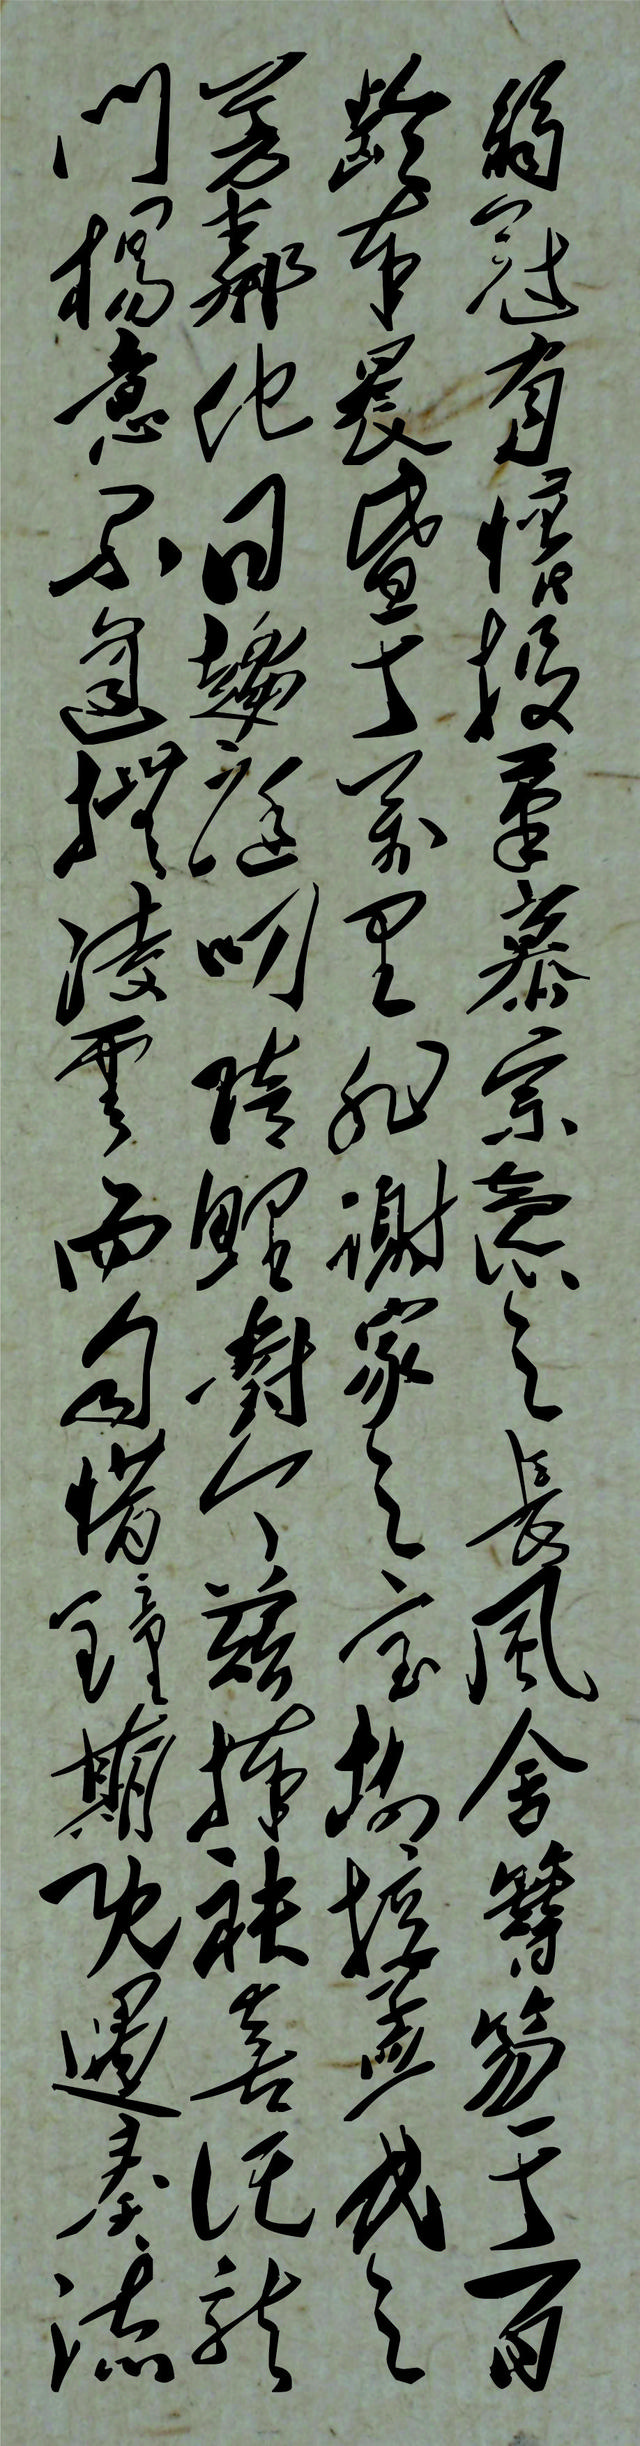 弱冠有懷投筆慕宗愨之長風舍簪笏于百
齡奉晨昏于萬里非謝家之宝樹接孟氏之
芳鄰他日趨庭叨陪鯉對今茲捧袂喜託龍
門楊意不逢撫凌雲而自惜鐘期既遇奏流